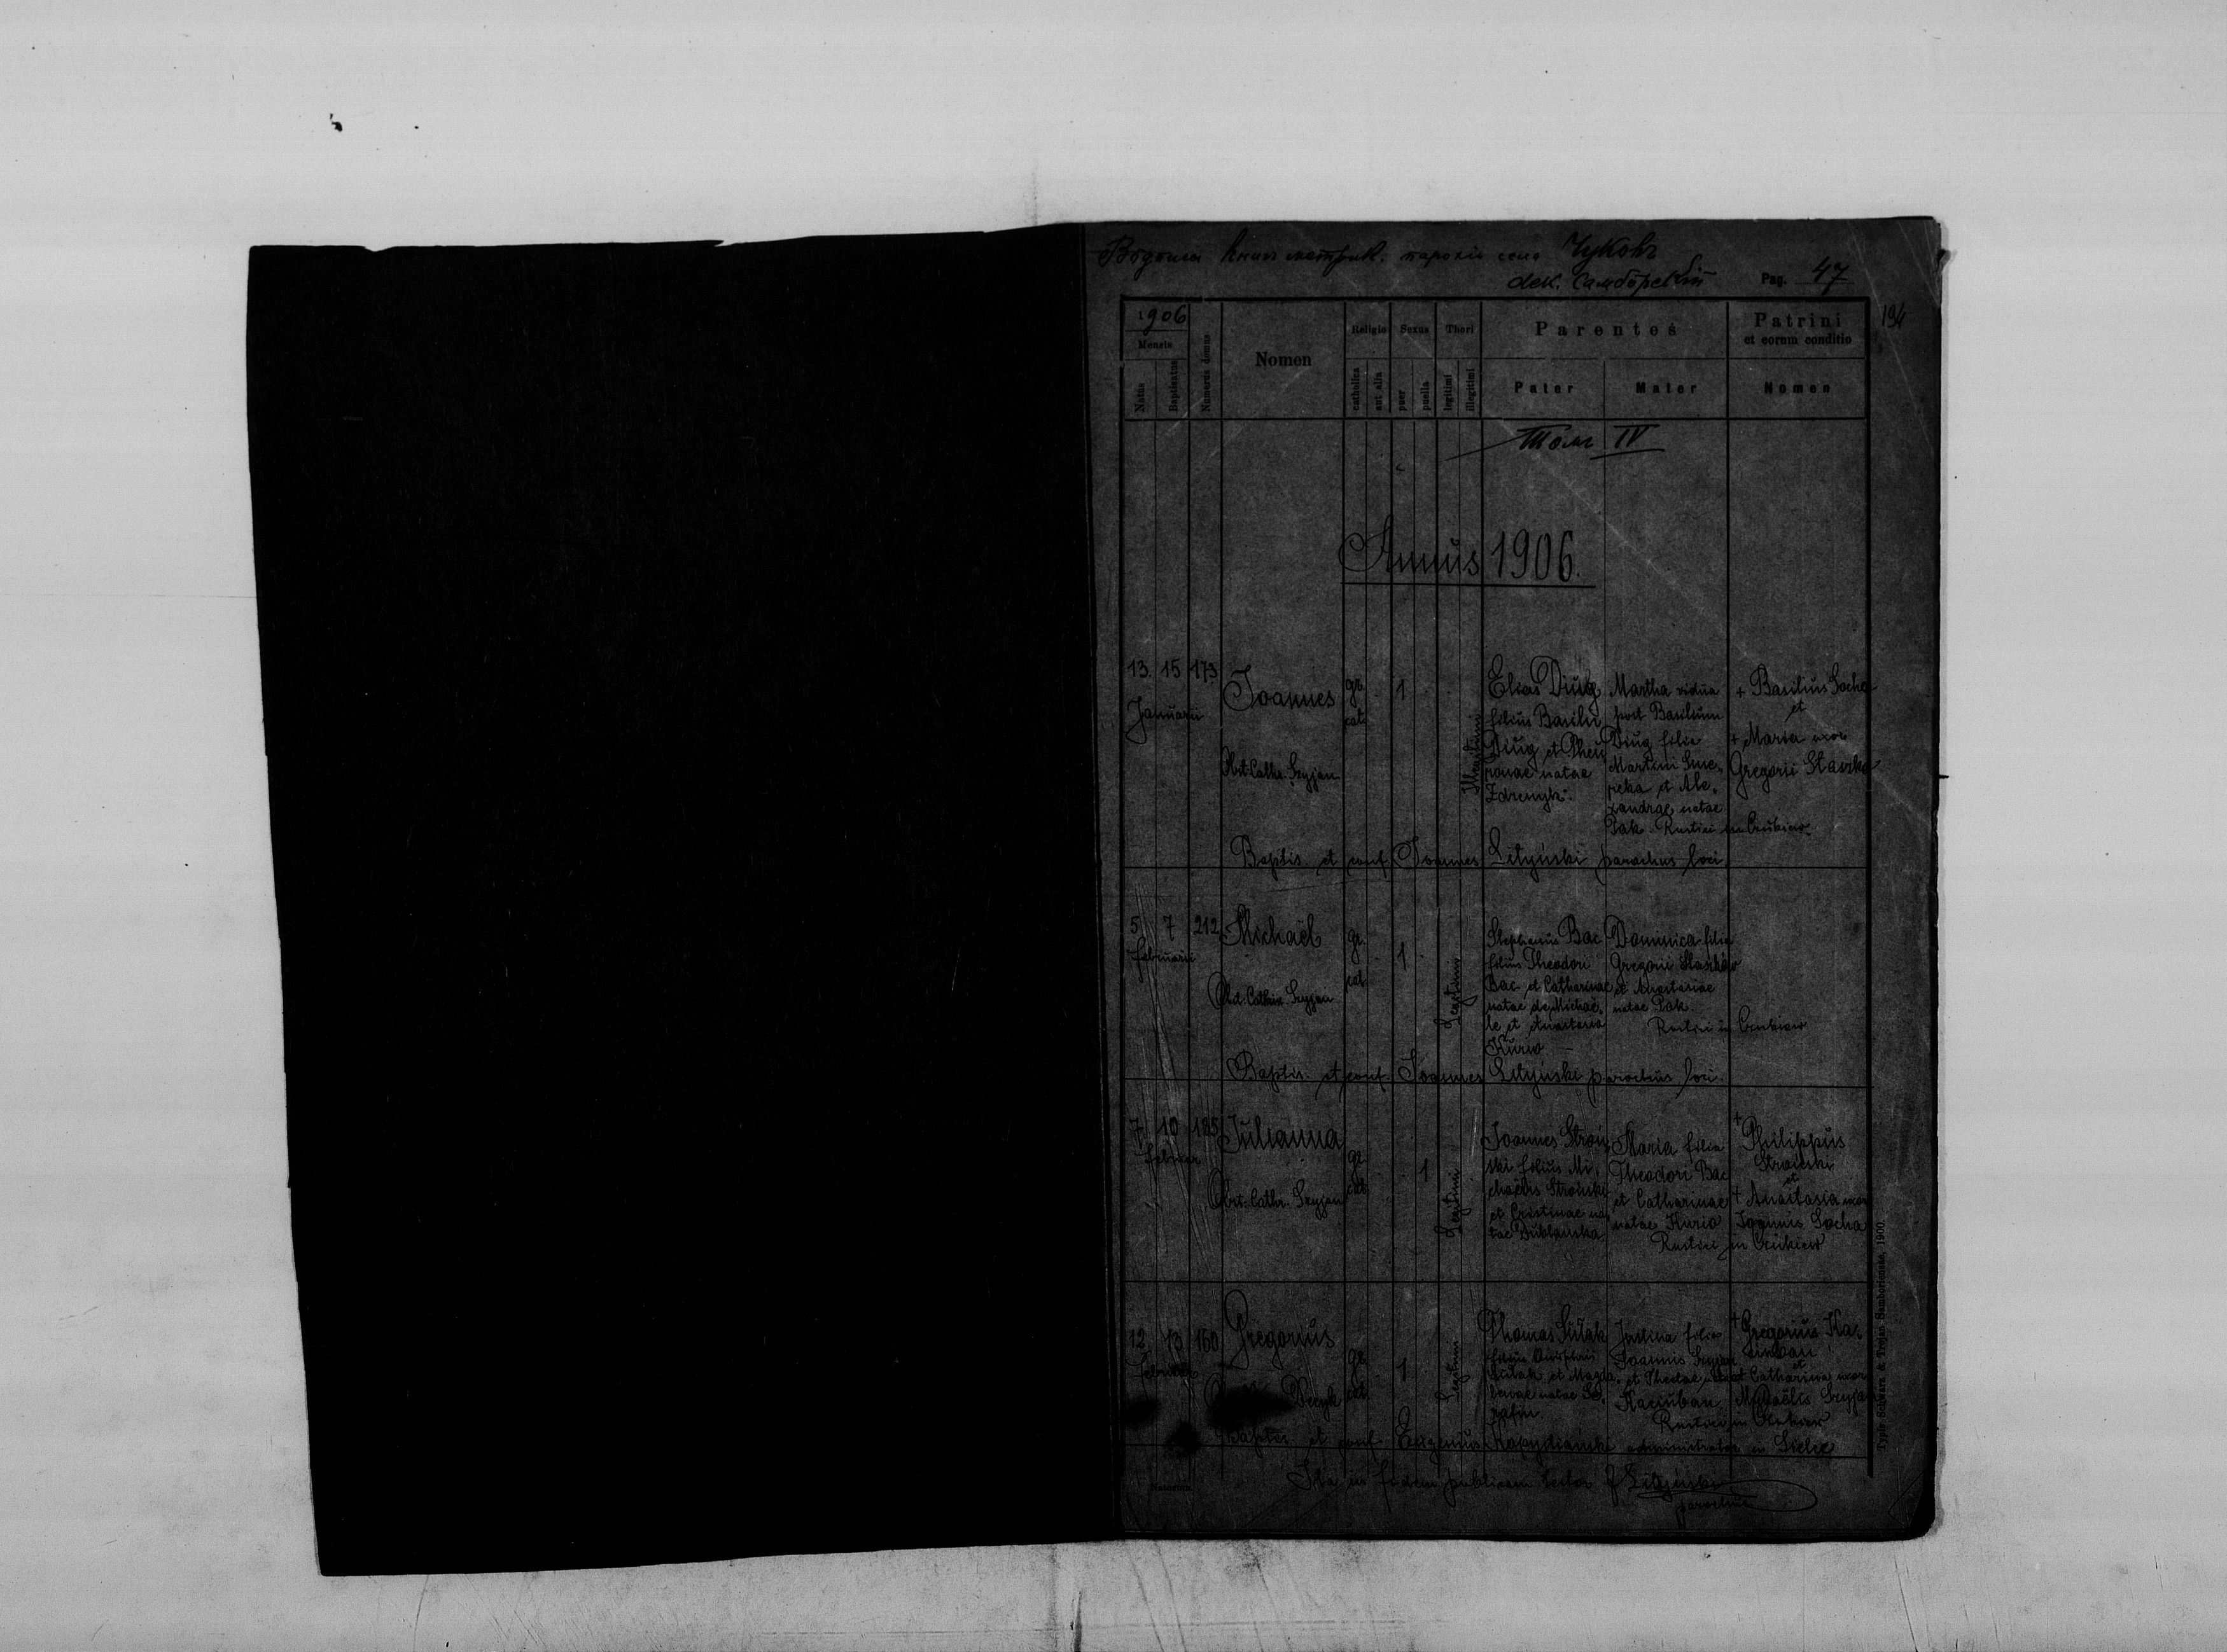 Відписи книг метрик. парохіи села Чуковъ
дек. Самборскій Pag. 47
194
1906
Mensis
Natus
Baptisatus
Numerus domus
Nomen
Religio
catholica
aut alia
Sexus
puer
puella
Thori
legitimi
illegitimi
Parentes
Pater
Mater
Patrini
et eorum conditio
Nomen
Томъ IV
Annus 1906.
13. 15 173
Januarii
Joannes
gr.
cat.
1
Illegitimi
Obst. Cathr. Szyjan
Elias Diug
filius Basilii
Diug et Phev
ronae natae
Zdrenyk.
Martha vidua
post Basilium
Diug filia
Martini Sme-
reka et Ale-
xandrae natae
Pak. Rustici in Czukiew
+ Basilius Socha
et
+ Maria uxor
Gregorii Stavzka
Baptis. et conf. Joannes Lityński parochus loci.
5 7 212
Februarii
Michaël
gr.
cat.
1
Legitimi
Obst. Cathr. Szyjan
Stephanus Bac
filius Theodori
Bac et Catharinae
natae de Michaë-
le et Anastasia
Kurio
Dominica filia
Gregorii
et Anastasiae
natae Pak
Rustici in Czukiew
Baptis. et conf. Joannes Lityński parochus loci.
7 10 185
Februar
Julianna
gr.
cat
1
Legitimi
Obst. Cathr. Szyjan
Joannes Stroiń-
ski filius Mi-
chaëlis Stroiński
et Cristinae na-
tae Dublańska
Maria filia
Theodori Bac
et Catharinae
natae Kurio
Rustici in Czukiew
+ Philippus
Stroiński
et
+ Anastasia uxor
Joannis Socha
12 13 160
Februar
Gregorius
gr.
cat
1
Legitimi
Decyk
Thomas Sułak
filius Onuphrii
Sułak et Magda-
lenae natae Se-
rafin
Justina filia
Joannis Szyjan
et Theclae natae
Kaciuban
Rustici in Czukiew
+ Gregorius Ka-
ciuban
et
+ Catharina uxor
Michaëlis Szyjan
Baptis. et conf. Eugenius administrator in Sielec
Ita in fidem publicam testor J Lityński
parochus
Typis Schwarz & Trojan Samboriensis, 1900.